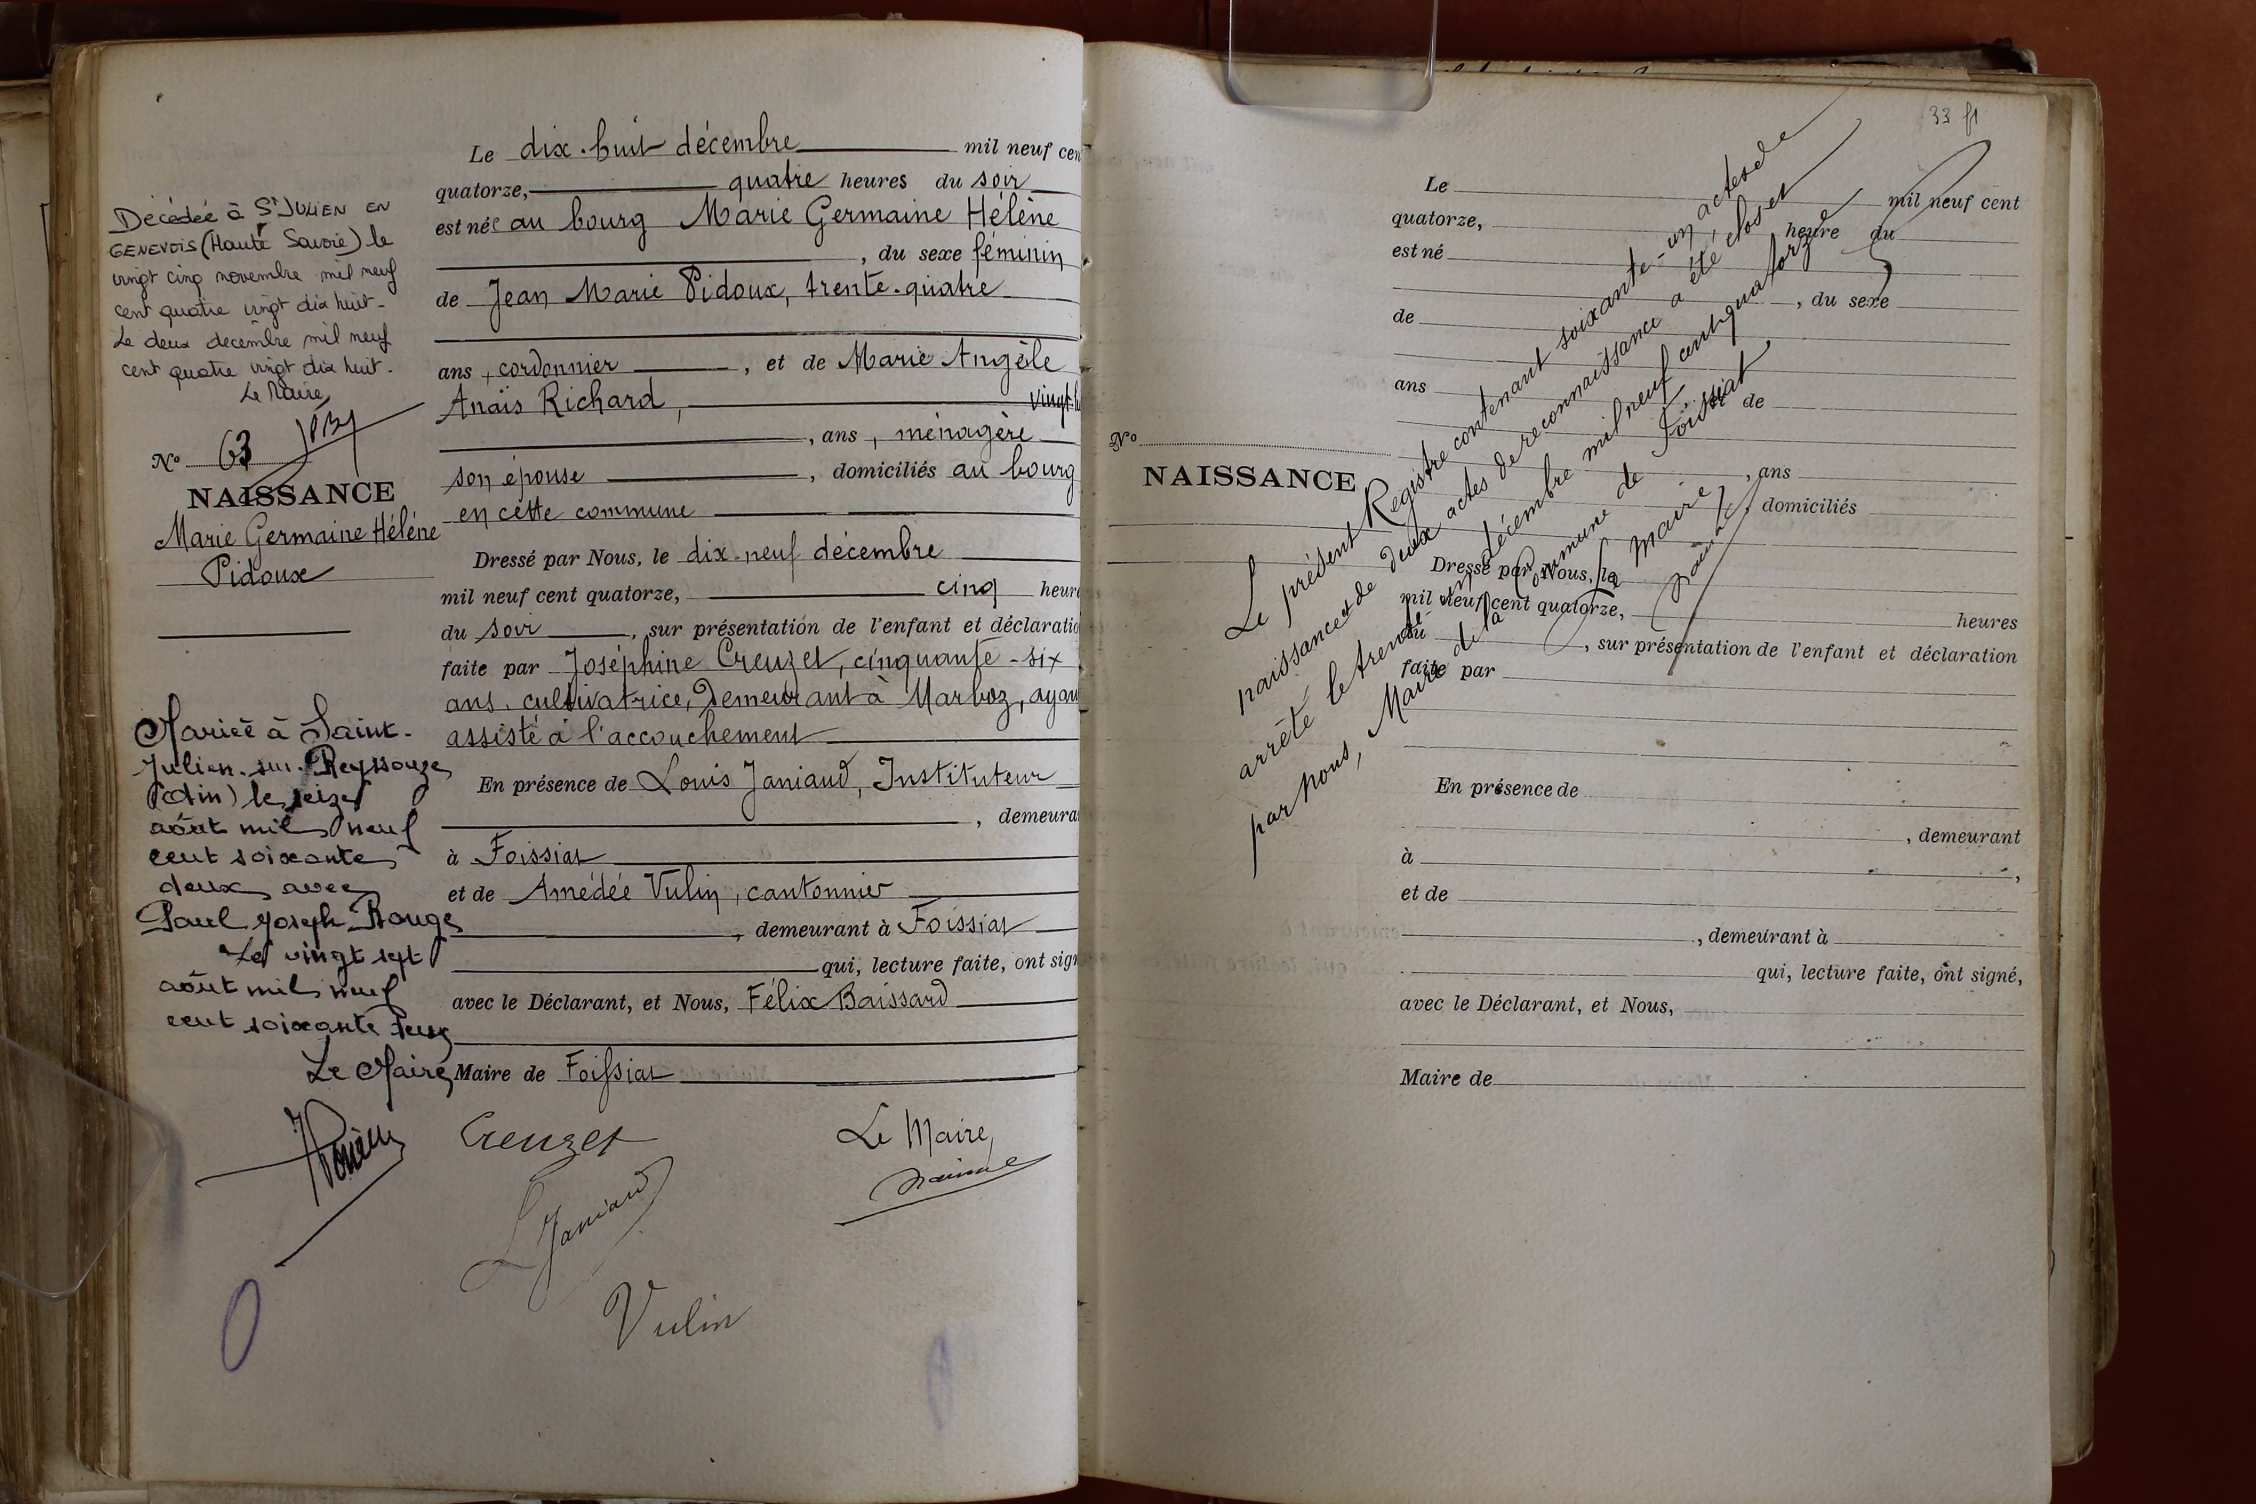 Décédée à St JULIEN EN
GENEVOIS (Haute Savoie) le
vingt cinq novembre mil neuf
cent quatre vingt dix huit -
Le deux décembre mil neuf
cent quatre vingt dix huit.
Le Maire,
No 63
NAISSANCE
Marie Germaine Hélène
Pidoux
Mariée à Saint-
Julien-sur-Reyssouze
(Ain) le seize
août mil neuf
cent soixante
deux avec
Paul Joseph Rouge
Le vingt sept
août mil neuf
cent soixante deux
Le Maire
Le dix-huit décembre mil neuf cen
quatorze, quatre heures du soir
est née au bourg Marie Germaine Hélène
, du sexe féminin
de Jean Marie Pidoux, trente-quatre
ans, cordonnier , et de Marie Angèle
Anaïs Richard, vingt
, ans, ménagère
son épouse , domiciliés au bourg
en cette commune
Dressé par Nous, le dix-neuf décembre
mil neuf cent quatorze, cinq heur
du soir , sur présentation de l'enfant et déclaratio
faite par Joséphine Creuzet, cinquante-six
ans, cultivatrice, demeurant à Marboz, ayan
assisté à l'accouchement
En présence de Louis Janiaud, Instituteur
, demeura
à Foissiat
et de Amédée Vulin, cantonnier
, demeurant à Foissiat
qui, lecture faite, ont sign
avec le Déclarant, et Nous, Félix Baissard
Maire de Foissiat
Creuzet
Le Maire,
L Janiaud
Vulin
33 f1
Le mil neuf cent
quatorze, heure du
est né
, du sexe
de
ans et de
No
NAISSANCE
, ans
, domiciliés
Dressé par Nous, le
mil neuf cent quatorze, heures
du , sur présentation de l'enfant et déclaration
faite par
En présence de
, demeurant
à ,
et de
, demeurant à
qui, lecture faite, ont signé,
avec le Déclarant, et Nous,
Maire de
Le présent Registre contenant soixante-un, actes de
naissance et de deux actes de reconnaissance a été clos et
arrêté le trente-un décembre mil neuf cent quatorze
par nous, Maire de la Commune de Foissiat
Le Maire